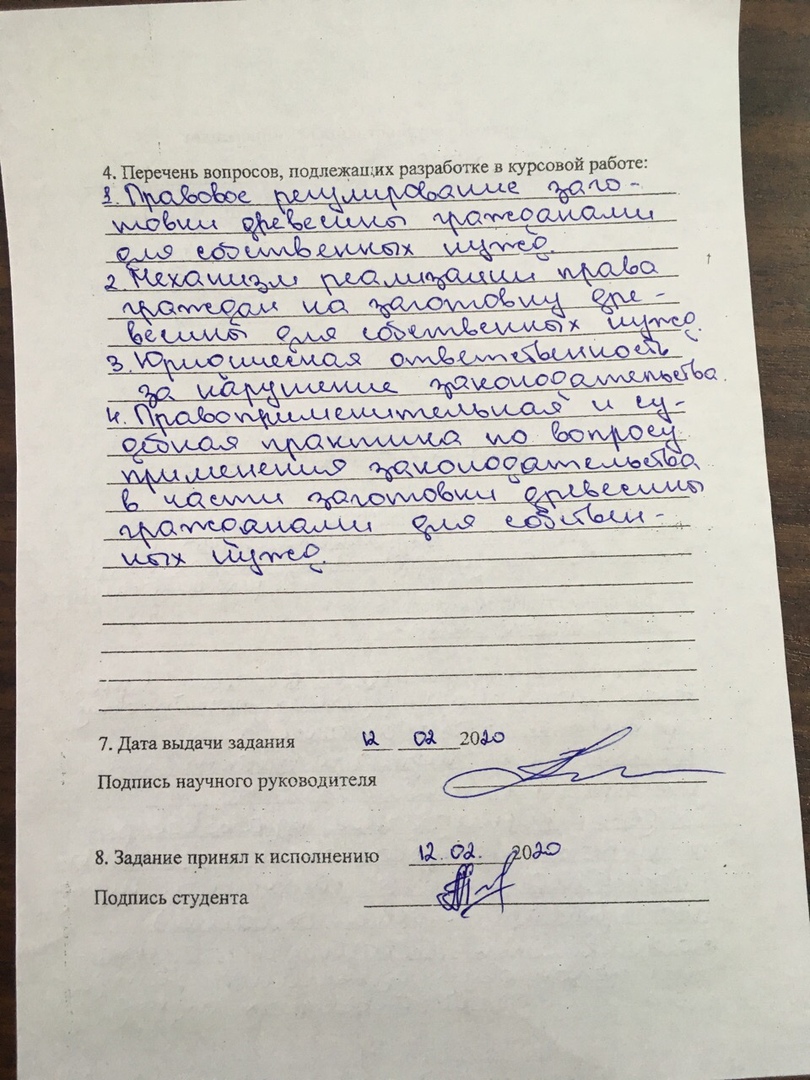 4. Перечень вопросов, подлежащих разработке в курсовой работе:
1. Правовое регулирование заго-
товки древесины гражданами
для собственных нужд.
2. Механизм реализации права
граждан на заготовку дре-
весины для собственных нужд.
3. Юридическая ответственность
за нарушение законодательства.
4. Правоприменительная и су-
дебная практика по вопросу
применения законодательства
в части заготовки древесины
гражданами для собствен-
ных нужд.
7. Дата выдачи задания 12 02 2020
Подпись научного руководителя
8. Задание принял к исполнению 12.02. 2020
Подпись студента